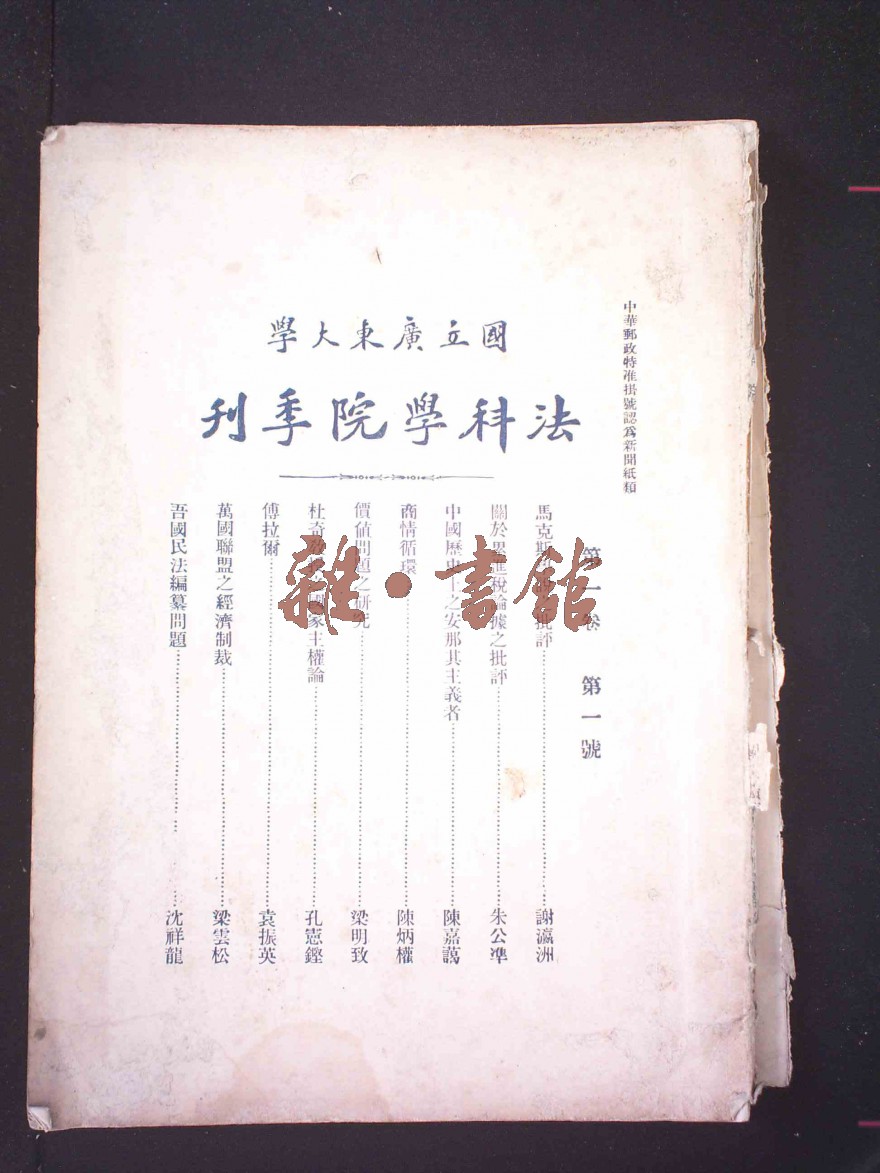 中華郵政特准掛號認爲新聞紙類
國立廣東大學
法科學院季刊
第一卷 第一號
馬克斯 批評 謝瀛洲
關於累進稅 據之批評 朱公準
中國歷史上之安那其主義者 陳嘉藹
商情循環 陳炳權
價值問題之研究 梁明致
杜奇 國家主權論 孔憲鏗
傅拉爾 袁振英
萬國聯盟之經濟制裁 梁雲松
吾國民法編纂問題 沈祥龍
雜·書館